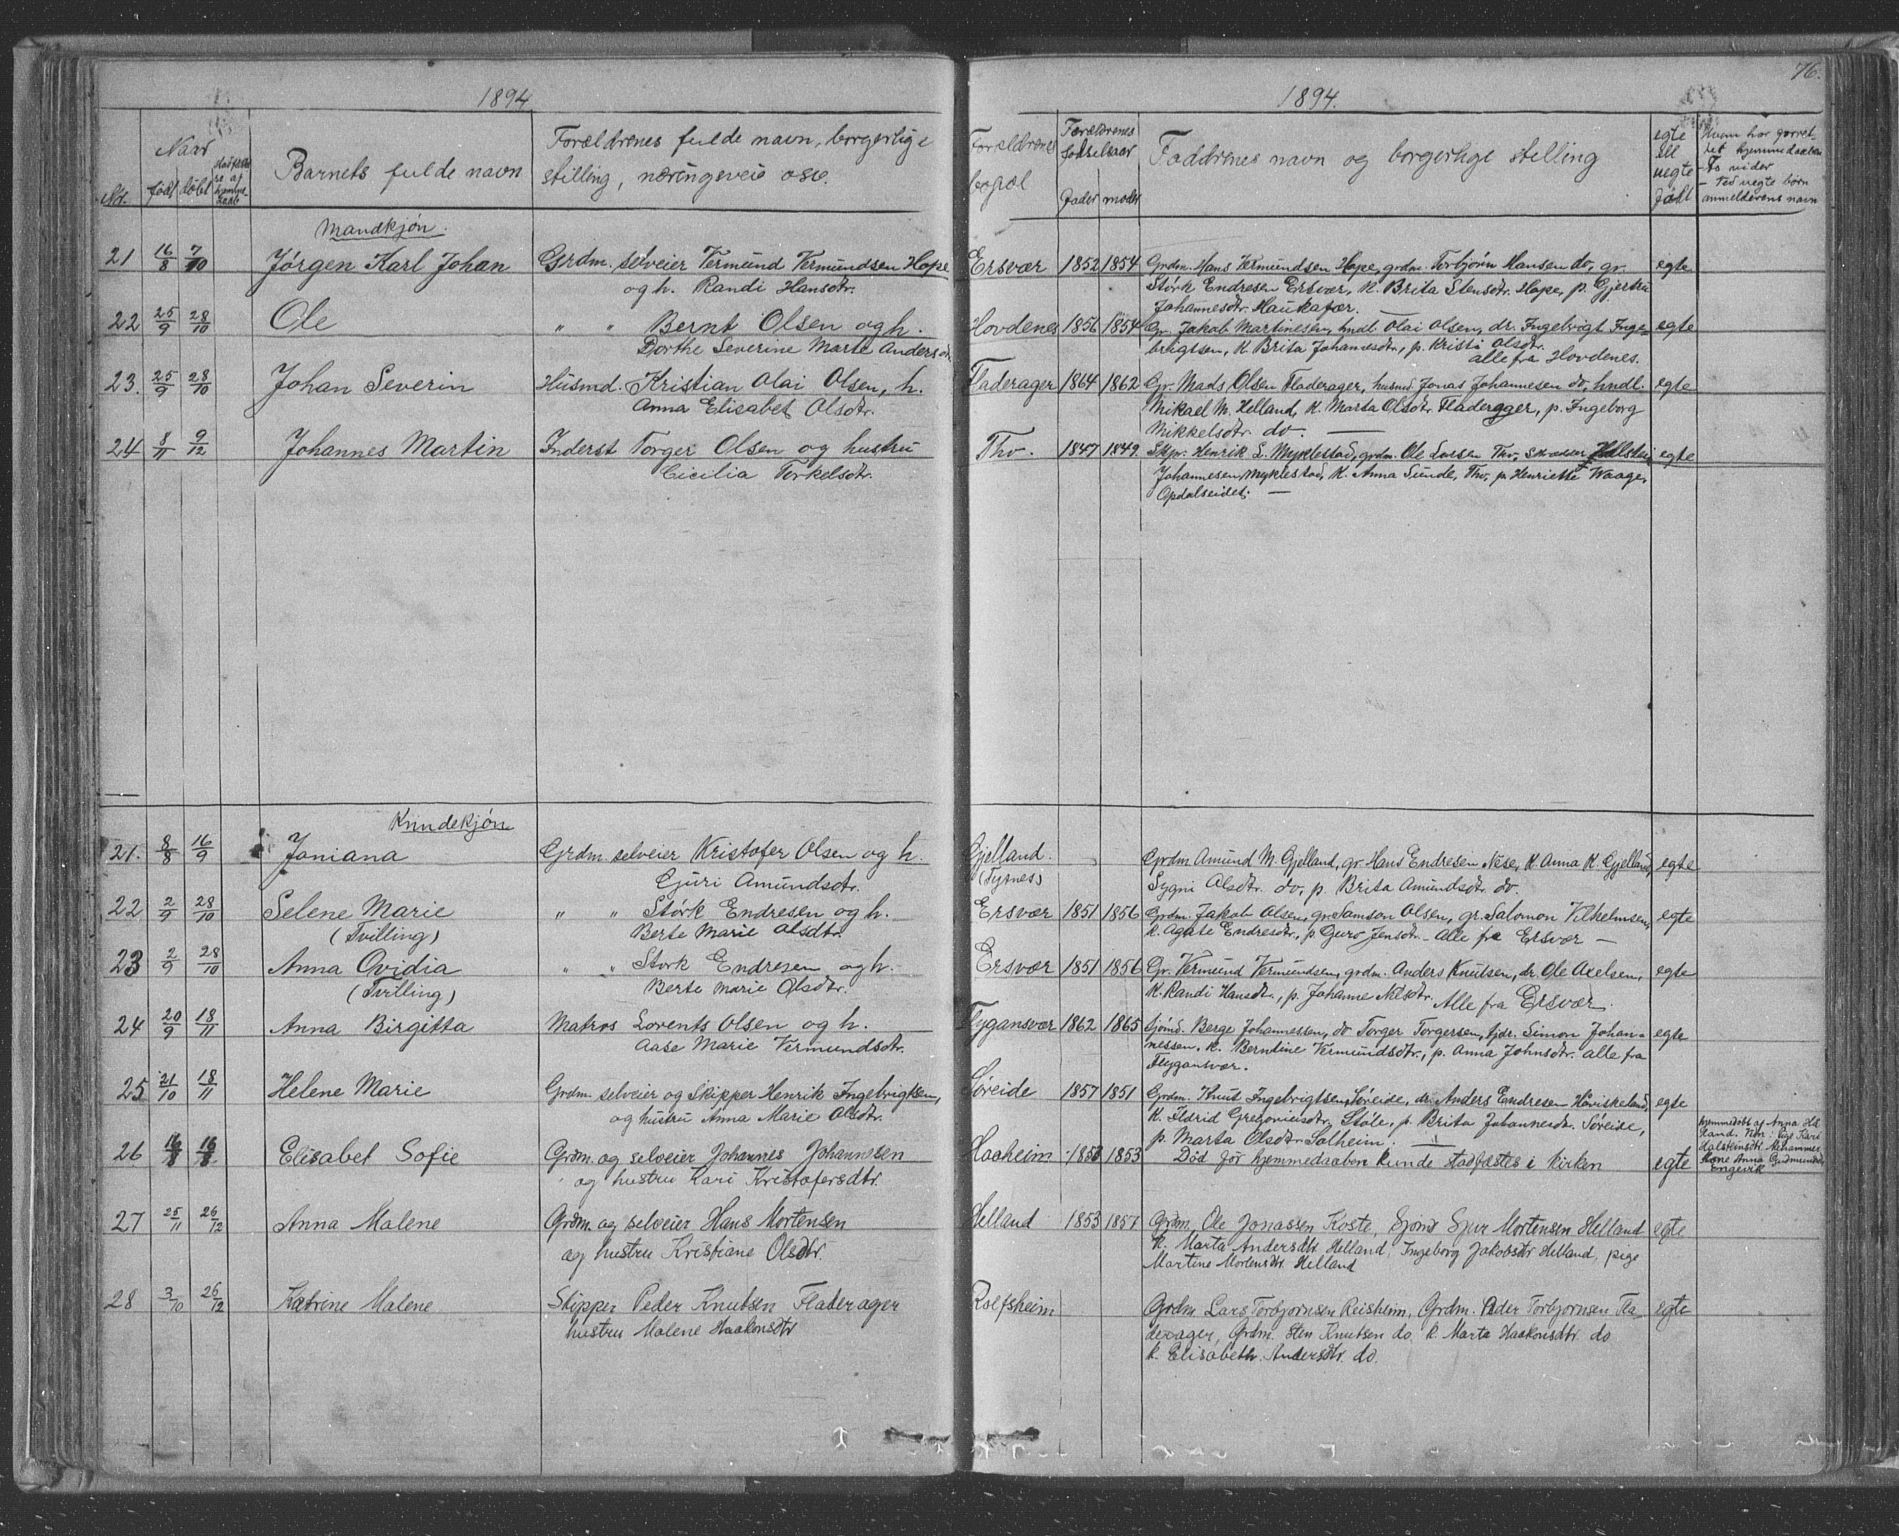 1894
Naar
Nr.
født
døbt
Barnets fulde navn
Forældrenes fulde navn, borgerlige
stilling, næringsveie osv.
Mandkjøn.
21 16/8 7/10 Jørgen Karl Johan Grdm. selveier Vermund Vermundsen Hope
og h. Randi Hansdtr.
22 25/9 28/10 Ole " " Bernt Olsen og h.
Dorthe Severine Marie Andersdtr.
23. 25/9 28/10 Johan Severin Husmd. Kristian Olai Olsen, h.
Anna Elisabet Olsdtr.
24 8/11 9/12 Johannes Martin Inderst Torger Olsen og hustru
Cicilia Torkelsdtr.
Kvindekjøn
21. 8/8 16/9 Joniana Grdm. selveier Kristofer Olsen og h.
Guri Amundsdtr.
22 2/9 28/10 Selene Marie " " Størk Endresen og h.
(Tvilling) Berte Marie Olsdtr.
23 2/9 28/10 Anna Ovidia " " Størk Endresen og h.
(Tvilling) Berte Marie Olsdtr.
24 20/9 18/11 Anna Birgitta Matros Lorents Olsen og h.
Aase Marie Vermundsdtr.
25 21/10 18/11 Helene Marie Grdm. selveier og Skipper Henrik Ingebrigtsen,
og hustru Anna Marie Olsdtr.
26 16/8 16/8 Elisabet Sofie Grdm. og selveier Johannes Johannsen
og hustru Kari Kristofersdtr.
27 25/11 26/12 Anna Malene Grdm. og selveier Hans Mortensen
og hustru Kristiane Olsdtr.
28 3/10 26/12 Katrine Malene Skipper Peder Knutsen Flaterager
hustru Malene Haakonsdtr
76.
1894.
Forældrenes
bopæl
Forældrenes
fødselsaar
fader moder
Faddrenes navn og borgerlige stilling
egte
ell
uegte
født
Hvem har forret-
tet hjemmedaaben
- To vidner
- Ved uegte børn
anmelderens navn
Ersvær 1852 1854 Grdm. Hans Vermundsen Hope, grdm. Torbjørn Hansen do, gr. egte
Størk Endresen Ersvær, k. Brita Stensdtr. Hope, p. Gjertru
Johannesdtr. Haukafær.
Hovdenes 1856 1854 Gr. Jakob Martinesen, hndl. Olai Olsen, dr. Ingebrigt Inge- egte
brigtsen, k. Brita Johannesdtr, p. Kristi Olsdtr.
alle fra Hovdenes.
Fladerager 1864 1862 Gr. Mads Olsen Fladerager, husmd. Jonas Johannesen do, hndl. egte
Mikael M. Helland, k. Marta Olsdtr. Fladerager, p. Ingeborg
Mikkelsdtr. do.
Tho. 1847 1849 Skpr. Henrik L. Myklestad, grdm. Ole Larsen Tho, skræder Halstein egte
Johannesen Myklestad, k. Anna Sunde, Tho, p. Henriette Waage,
Opdalseidet.
Gjelland. Grdm Amund M. Gjelland, gr. Hans Endresen Nese, k. Anna K. Gjelland, egte
(Tysnes) Sygni Olsdtr. do, p. Brita Amundsdtr. do.
Ersvær 1851 1856 Grdm. Jakob Olsen, gr. Samson Olsen, gr. Salomon Vilhelmsen, egte
k. Agate Endresdtr., p. Guro Jensdtr. - Alle fra Ersvær
Ersvær 1851 1856 Gr. Vermund Vermundsen, grdm. Anders Knutsen, dr. Ole Axelsen, egte
k. Randi Hansdtr., p. Johanne Nilsdtr. Alle fra Ersvær.
Flygansvær 1862 1865 Sjømd. Berge Johannessen, do Torger Torgersen, fjdr. Simon Johan- egte
nessen, k. Berntine Vermundsdtr., p. Anna Johnsdtr. alle fra
Flygansvær.
Søreide 1857 1851 Grdm. Knut Ingebrigtsen Søreide, dr. Anders Endresen Håviskeland, egte
k. Eldrid Gregoriusdtr. Støle, p. Brita Johannesdtr. Søreide,
p. Marta Olsdtr. Solheim.
Haaheim 1853 Død før hjemmedaaben kunde stadfæstes i kirken egte
hjemmedøbt af Anna
Engevik
Helland 1853 1857 Grdm. Ole Jonassen Koste, Sjømd Sjur Mortensen Helland egte
k. Marta Andersdtr Helland, Ingeborg Jakobsdtr Helland, pige
Martine Mortensdtr. Helland
Rolfsheim Grdm Lars Torbjørnsen Reisheim, Grdm. Peder Torbjørnsen Fla- egte
derager, Grdm. Sten Knutsen do, k. Marta Haakonsdtr. do
k. Elisabeth Andersdtr. do.